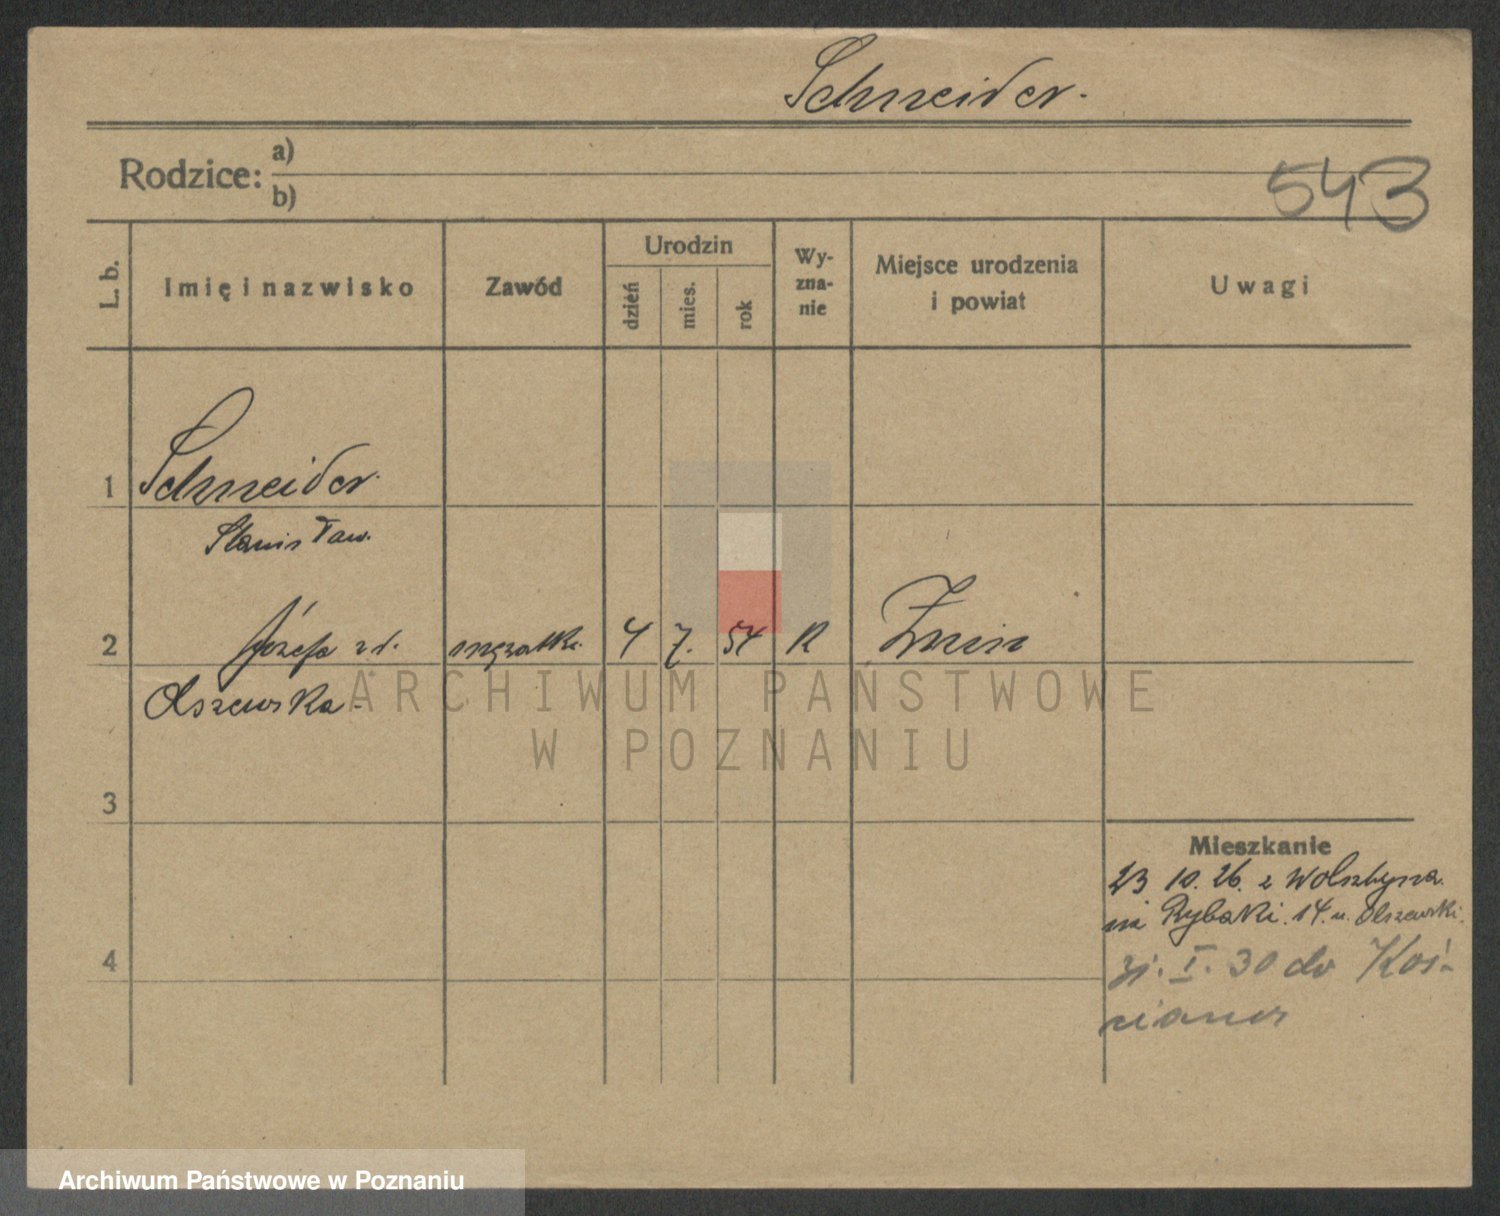 Schneider.
Rodzice: a)
b)
543
L. b.
Imię i nazwisko
Zawód
Urodzin
dzień
mies.
rok
Wy-
zna-
nie
Miejsce urodzenia
i powiat
Uwagi
1 Schneider
Stanisław.
2 Józefa zd. mężatka. 4 7. 54 R Żnin
Olszewska
3
Mieszkanie
23 10. 26. z Wolsztyna.
na Rybaki. 14. u. Olszewski.
4
I. 30 do Koś-
ciana
ARCHIWUM PAŃSTWOWE
W POZNANIU
Archiwum Państwowe w Poznaniu